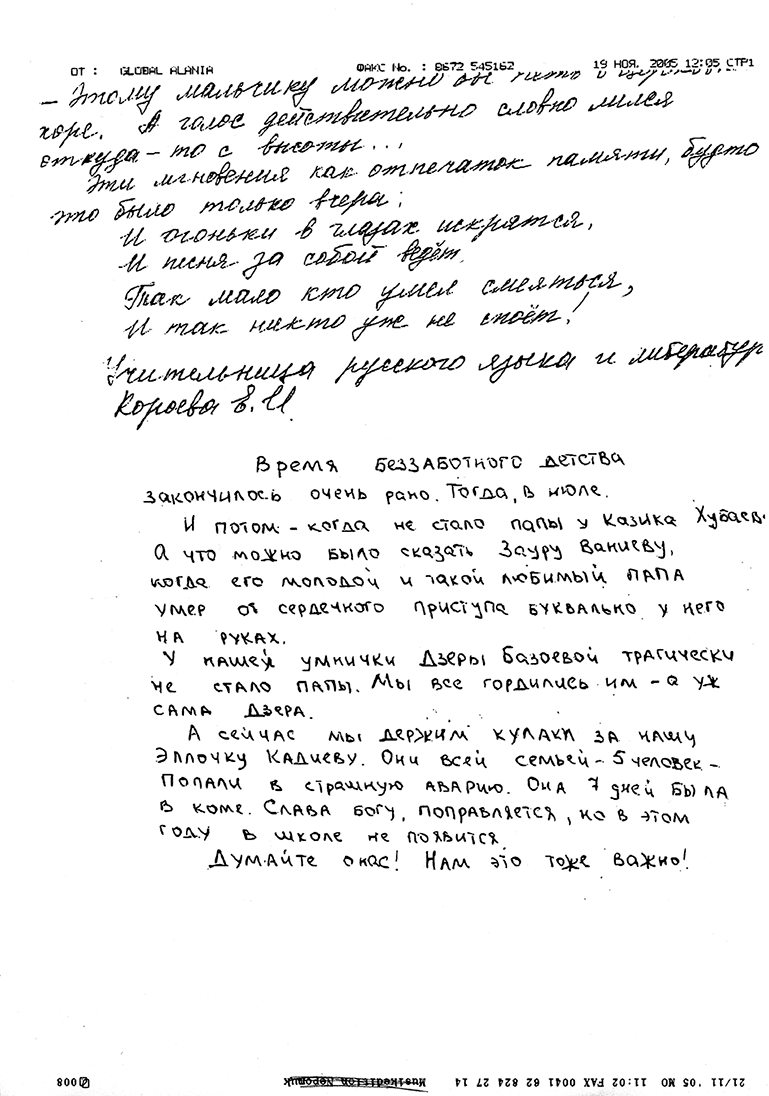 ОТ : GLOBAL ALANIA ФАКС No. : 8672 545162 19 НОЯ. 2005 12:05 СТР1
– Этому мальчику можно
хоре. А голос действительно словно лился
откуда-то с высоты...
Эти мгновения как отпечаток памяти, будто
это было только вчера:
И огоньки в глазах искрятся,
И песня за собой ведёт.
Так мало кто умел смеяться,
И так никто уже не споёт!
Учительница русского языка и литератур
Короева Е.И.
Время беззаботного детства
закончилось очень рано. Тогда, в июле.
И потом – когда не стало папы у Казика Хубаев.
А что можно было сказать Зауру Ваниеву,
когда его молодой и такой любимый папа
умер от сердечного приступа буквально у него
на руках.
У нашей умнички Дзеры Базоевой трагически
не стало папы. Мы все гордились им – а уж
сама Дзера.
А сейчас мы держим кулаки за нашу
Эллочку Кадиеву. Они всей семьей – 5 человек –
попали в страшную аварию. Она 7 дней была
в коме. Слава богу, поправляется, но в этом
году в школе не появится.
Думайте о нас! Нам это тоже важно!
21/11 '05 MO 11:02 FAX 0041 62 824 27 14 Musikedition Nepomuk 008